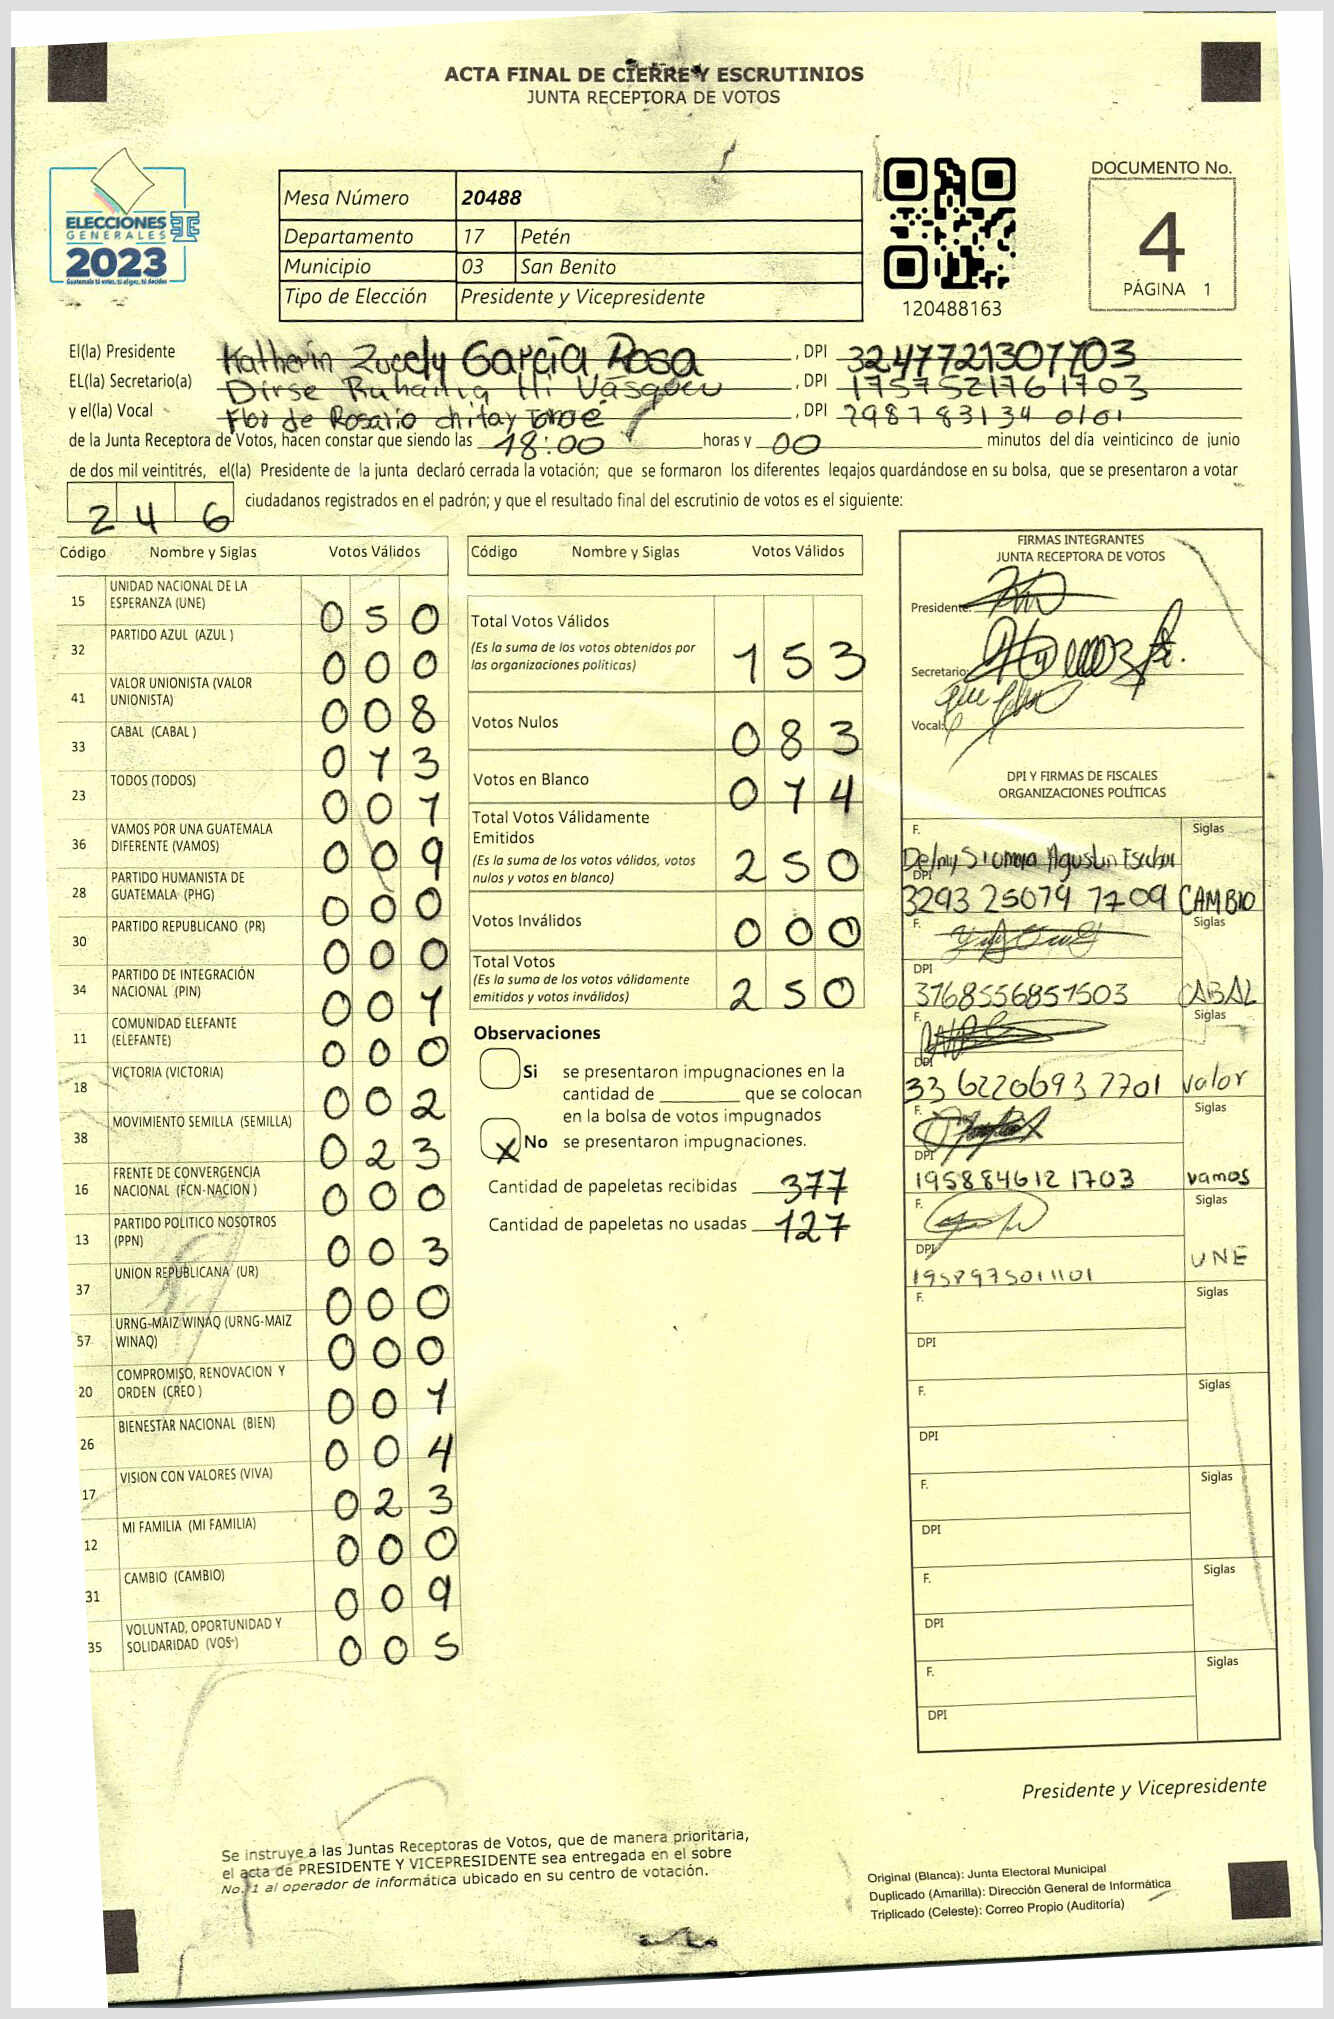 ACTA FINAL DE CIERRE Y ESCRUTINIOS
JUNTA RECEPTORA DE VOTOS
ELECCIONES
GENERALES
2023
Guatemala tú votas, tú eliges, tú decides
Mesa Número 20488
Departamento 17 Petén
Municipio 03 San Benito
Tipo de Elección Presidente y Vicepresidente
120488163
DOCUMENTO No.
4
PÁGINA 1
El(la) Presidente Katherin Zucely García Rosa, DPI 3247721307703
EL(la) Secretario(a) Dirse Vásquez, DPI 1757521761703
y el(la) Vocal Flor de Rosario chitay, DPI 2987831340101
de la Junta Receptora de Votos, hacen constar que siendo las 18:00 horas y 00 minutos del día veinticinco de junio
de dos mil veintitrés, el(la) Presidente de la junta declaró cerrada la votación; que se formaron los diferentes legajos quardándose en su bolsa, que se presentaron a votar
246 ciudadanos registrados en el padrón; y que el resultado final del escrutinio de votos es el siguiente:
Código Nombre y Siglas Votos Válidos
15 UNIDAD NACIONAL DE LA ESPERANZA (UNE) 050
32 PARTIDO AZUL (AZUL ) 000
41 VALOR UNIONISTA (VALOR UNIONISTA) 008
33 CABAL (CABAL ) 013
23 TODOS (TODOS) 001
36 VAMOS POR UNA GUATEMALA DIFERENTE (VAMOS) 009
28 PARTIDO HUMANISTA DE GUATEMALA (PHG) 000
30 PARTIDO REPUBLICANO (PR) 000
34 PARTIDO DE INTEGRACIÓN NACIONAL (PIN) 001
11 COMUNIDAD ELEFANTE (ELEFANTE) 000
18 VICTORIA (VICTORIA) 002
38 MOVIMIENTO SEMILLA (SEMILLA) 023
16 FRENTE DE CONVERGENCIA NACIONAL (FCN-NACION ) 000
13 PARTIDO POLITICO NOSOTROS (PPN) 003
37 UNION REPUBLICANA (UR) 000
57 URNG-MAIZ WINAQ (URNG-MAIZ WINAQ) 000
20 COMPROMISO, RENOVACION Y ORDEN (CREO ) 001
26 BIENESTAR NACIONAL (BIEN) 004
17 VISION CON VALORES (VIVA) 023
12 MI FAMILIA (MI FAMILIA) 000
31 CAMBIO (CAMBIO) 009
35 VOLUNTAD, OPORTUNIDAD Y SOLIDARIDAD (VOS) 005
Código Nombre y Siglas Votos Válidos
Total Votos Válidos 153
(Es la suma de los votos obtenidos por
las organizaciones políticas)
Votos Nulos 083
Votos en Blanco 014
Total Votos Válidamente
Emitidos 250
(Es la suma de los votos válidos, votos
nulos y votos en blanco)
Votos Inválidos 000
Total Votos 250
(Es la suma de los votos válidamente
emitidos y votos inválidos)
Observaciones
Si se presentaron impugnaciones en la
cantidad de ________ que se colocan
en la bolsa de votos impugnados
X No se presentaron impugnaciones.
Cantidad de papeletas recibidas 377
Cantidad de papeletas no usadas 127
FIRMAS INTEGRANTES
JUNTA RECEPTORA DE VOTOS
Presidente:
Secretario:
Vocal:
DPI Y FIRMAS DE FISCALES
ORGANIZACIONES POLÍTICAS
F. Agustin Escobar Siglas
DPI 3293 25079 1709 CAMBIO
F. Siglas
DPI 3168556851503 CABAL
F. Siglas
DPI 33 6220693 1701 valor
F. Siglas
DPI 195884612 1703 vamos
F. Siglas
DPI 1958975011101 UNE
F. Siglas
DPI
F. Siglas
DPI
F. Siglas
DPI
F. Siglas
DPI
F. Siglas
DPI
Presidente y Vicepresidente
Se instruye a las Juntas Receptoras de Votos, que de manera prioritaria,
el acta de PRESIDENTE Y VICEPRESIDENTE sea entregada en el sobre
No. 1 al operador de informática ubicado en su centro de votación.
Original (Blanca): Junta Electoral Municipal
Duplicado (Amarilla): Dirección General de Informática
Triplicado (Celeste): Correo Propio (Auditoría)